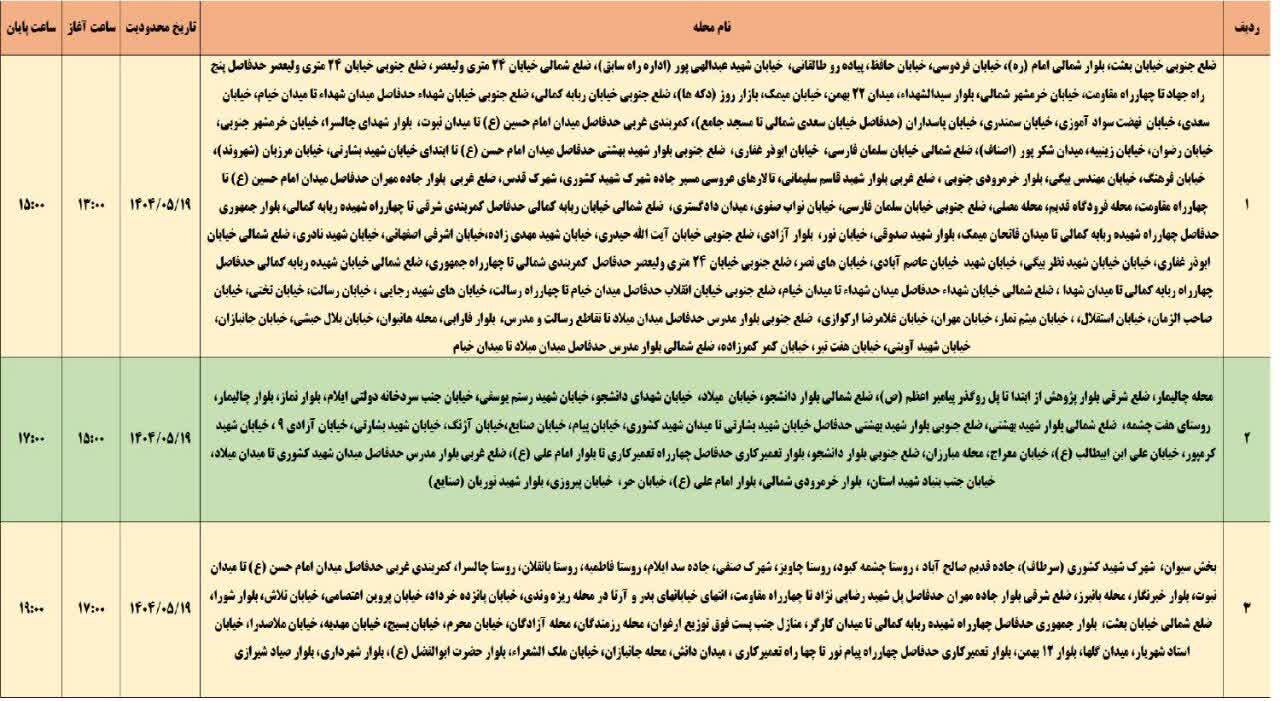 ردیف
نام محله
تاریخ محدودیت
ساعت آغاز
ساعت پایان
۱
ضلع جنوبی خیابان بعثت، بلوار شمالی امام (ره)، خیابان فردوسی، خیابان حافظ، پیاده رو طالقانی، خیابان شهید عبدالهی پور (اداره راه سابق)، ضلع شمالی خیابان ۲۴ متری ولیعصر، ضلع جنوبی خیابان ۲۴ متری ولیعصر حدفاصل پنج
راه جهاد تا چهارراه مقاومت، خیابان خرمشهر شمالی، بلوار سیدالشهداء، میدان ۲۲ بهمن، خیابان میمک، بازار روز (دکه ها)، ضلع جنوبی خیابان ربابه کمالی، ضلع جنوبی خیابان شهداء حدفاصل میدان شهداء تا میدان خیام، خیابان
سعدی، خیابان نهضت سواد آموزی، خیابان سمندری، خیابان پاسداران (حدفاصل خیابان سعدی شمالی تا مسجد جامع)، کمربندی غربی حدفاصل میدان امام حسین (ع) تا میدان نبوت، بلوار شهدای چالسرا، خیابان خرمشهر جنوبی،
خیابان رضوان، خیابان زینبیه، میدان شکر پور (اصناف)، ضلع شمالی خیابان سلمان فارسی، خیابان ابوذر غفاری، ضلع جنوبی بلوار شهید بهشتی حدفاصل میدان امام حسن (ع) تا ابتدای خیابان شهید بشارتی، خیابان مرزبان (شهروند)،
خیابان فرهنگ، خیابان مهندس بیگی، بلوار خرمرودی جنوبی ، ضلع غربی بلوار شهید قاسم سلیمانی، تالارهای عروسی مسیر جاده شهرک شهید کشوری، شهرک قدس، ضلع غربی بلوار جاده مهران حدفاصل میدان امام حسین (ع) تا
چهارراه مقاومت، محله فرودگاه قدیم، محله مصلی، ضلع جنوبی خیابان سلمان فارسی، خیابان نواب صفوی، میدان دادگستری، ضلع شمالی خیابان ربابه کمالی حدفاصل کمربندی شرقی تا چهارراه شهیده ربابه کمالی، بلوار جمهوری
حدفاصل چهارراه شهیده ربابه کمالی تا میدان فاتحان میمک، بلوار شهید صدوقی، خیابان نور، بلوار آزادی، ضلع جنوبی خیابان آیت الله حیدری، خیابان شهید مهدی زاده،خیابان اشرفی اصفهانی، خیابان شهید نادری، ضلع شمالی خیابان
ابوذر غفاری، خیابان خیابان شهید نظر بیگی، خیابان شهید خیابان عاصم آبادی، خیابان های نصر، ضلع جنوبی خیابان ۲۴ متری ولیعصر حدفاصل کمربندی شمالی تا چهارراه جمهوری، ضلع شمالی خیابان شهیده ربابه کمالی حدفاصل
چهارراه ربابه کمالی تا میدان شهدا ، ضلع شمالی خیابان شهداء حدفاصل میدان شهداء تا میدان خیام، ضلع جنوبی خیابان انقلاب حدفاصل میدان خیام تا چهارراه رسالت، خیابان های شهید رجایی ، خیابان رسالت، خیابان تختی، خیابان
صاحب الزمان، خیابان استقلال، ، خیابان میثم تمار، خیابان مهران، خیابان غلامرضا ارکوازی، ضلع جنوبی بلوار مدرس حدفاصل میدان میلاد تا تقاطع رسالت و مدرس، بلوار فارابی، محله هانیوان، خیابان بلال حبشی، خیابان جانبازان،
خیابان شهید آوینی، خیابان هفت تیر، خیابان کمر کمرزاده، ضلع شمالی بلوار مدرس حدفاصل میدان میلاد تا میدان خیام
۱۴۰۴/۰۵/۱۹
۱۳:۰۰
۱۵:۰۰
۲
محله چالیمار، ضلع شرقی بلوار پژوهش از ابتدا تا پل روگذر پیامبر اعظم (ص)، ضلع شمالی بلوار دانشجو، خیابان میلاد، خیابان شهدای دانشجو، خیابان شهید رستم یوسفی، خیابان جنب سردخانه دولتی ایلام، بلوار نماز، بلوار چالیمار،
روستای هفت چشمه، ضلع شمالی بلوار شهید بهشتی، ضلع جنوبی بلوار شهید بهشتی حدفاصل خیابان شهید بشارتی تا میدان شهید کشوری، خیابان پیام، خیابان صنایع،خیابان آژنگ، خیابان شهید بشارتی، خیابان آزادی ۹ ، خیابان شهید
کرمپور، خیابان علی ابن ابیطالب (ع)، خیابان معراج، محله مبارزان، ضلع جنوبی بلوار دانشجو، بلوار تعمیرکاری حدفاصل چهارراه تعمیرکاری تا بلوار امام علی (ع)، ضلع غربی بلوار مدرس حدفاصل میدان شهید کشوری تا میدان میلاد،
خیابان جنب بنیاد شهید استان، بلوار خرمرودی شمالی، بلوار امام علی (ع)، خیابان حر، خیابان پیروزی، بلوار شهید نوریان (صنایع)
۱۴۰۴/۰۵/۱۹
۱۵:۰۰
۱۷:۰۰
۳
بخش سیوان، شهرک شهید کشوری (سرطاف)، جاده قدیم صالح آباد ، روستا چشمه کبود، روستا چاویز، شهرک صنفی، جاده سد ایلام، روستا فاطمیه، روستا بانقلان، روستا چالسرا، کمربندی غربی حدفاصل میدان امام حسن (ع) تا میدان
نبوت، بلوار خبرنگار، محله بانبرز، ضلع شرقی بلوار جاده مهران حدفاصل پل شهید رضایی نژاد تا چهارراه مقاومت، انتهای خیابانهای بدر و آرتا در محله ریزه وندی، خیابان پانزده خرداد، خیابان پروین اعتصامی، خیابان تلاش، بلوار شورا،
ضلع شمالی خیابان بعثت، بلوار جمهوری حدفاصل چهارراه شهیده ربابه کمالی تا میدان کارگر، منازل جنب پست فوق توزیع ارغوان، محله رزمندگان، محله آزادگان، خیابان محرم، خیابان بسیج، خیابان مهدیه، خیابان ملاصدرا، خیابان
استاد شهریار، میدان گلها، بلوار ۱۲ بهمن، بلوار تعمیرکاری حدفاصل چهارراه پیام نور تا چها راه تعمیرکاری ، میدان دانش، محله جانبازان، خیابان ملک الشعراء، بلوار حضرت ابوالفضل (ع)، بلوار شهرداری، بلوار صیاد شیرازی
۱۴۰۴/۰۵/۱۹
۱۷:۰۰
۱۹:۰۰